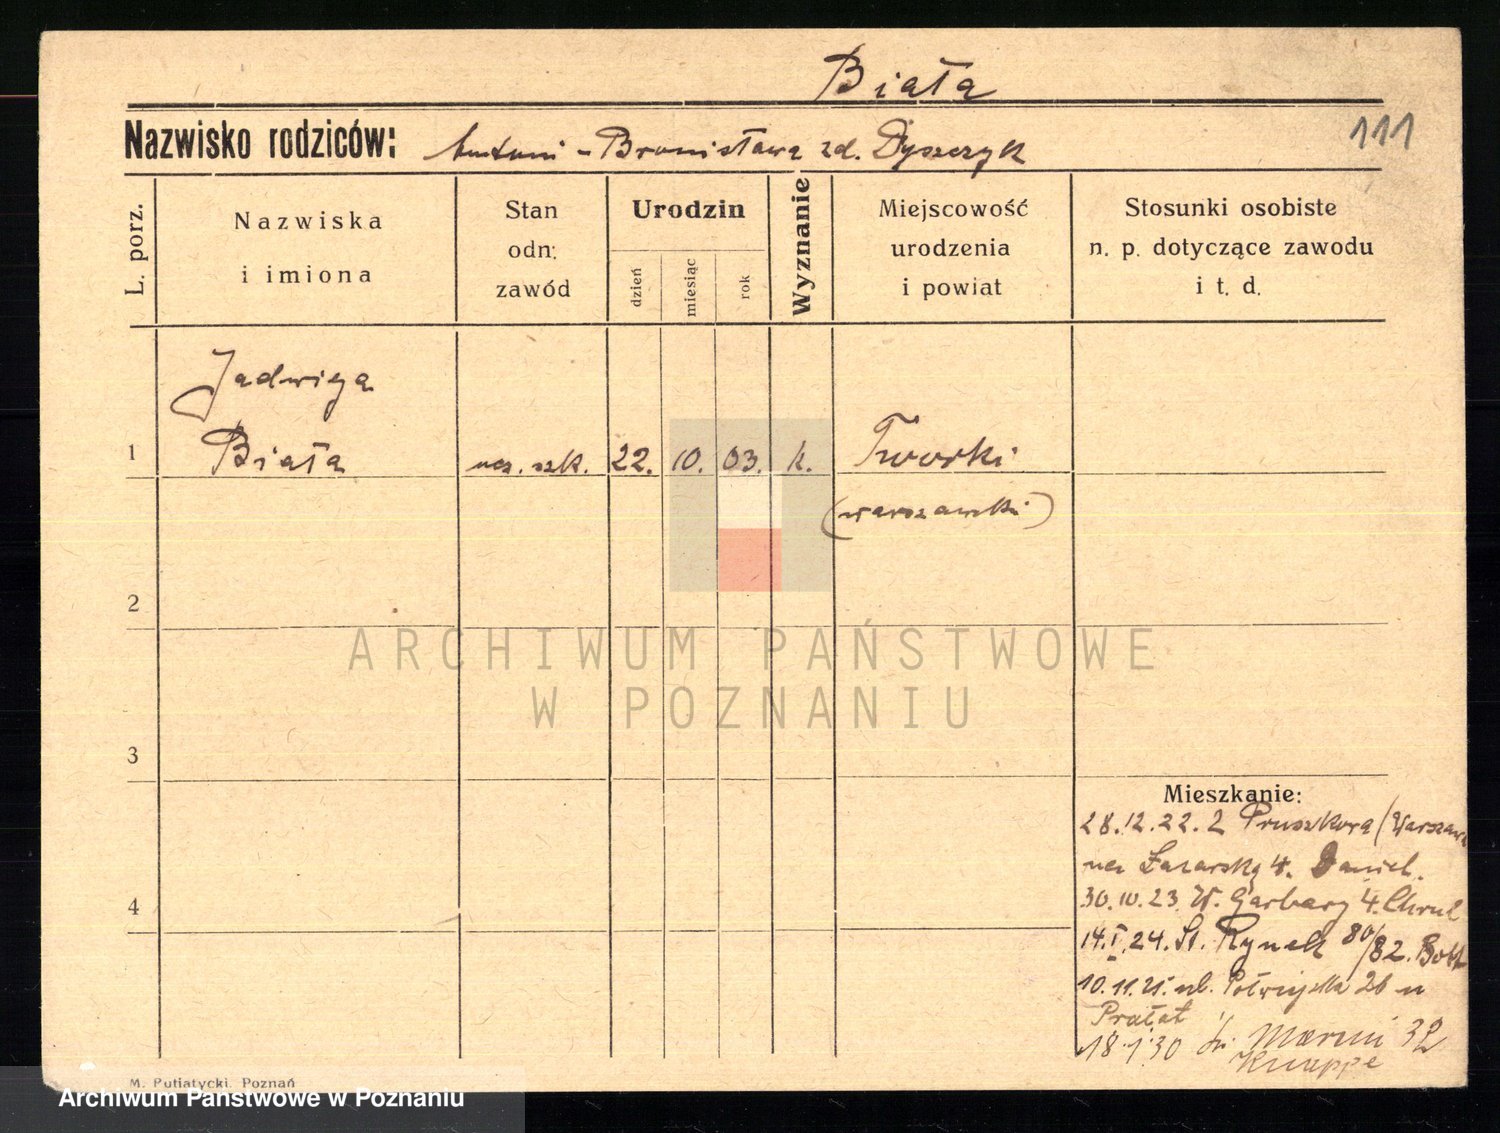 Biała
Nazwisko rodziców: Antoni - Bronisława zd. Dyszczyk
111
L. porz.
Nazwiska
i imiona
Stan
odn:
zawód
Urodzin
dzień
miesiąc
rok
Wyznanie
Miejscowość
urodzenia
i powiat
Stosunki osobiste
n. p. dotyczące zawodu
i t. d.
Jadwiga
1 Biała ucz. szk. 22. 10. 03. k. Tworki
(warszawski)
2
3
4
Mieszkanie:
28.12.22. z Pruszkowa (Warszawa
na Łazarską 4. Daniel.
30.10.23. W. Garbary 4.
14.I.24. St. Rynek 80/82.
10.11.25. Półwiejska 26
Prałat
18.1.30 32
Knappe
M. Putiatycki, Poznań
ARCHIWUM PAŃSTWOWE
W POZNANIU
Archiwum Państwowe w Poznaniu